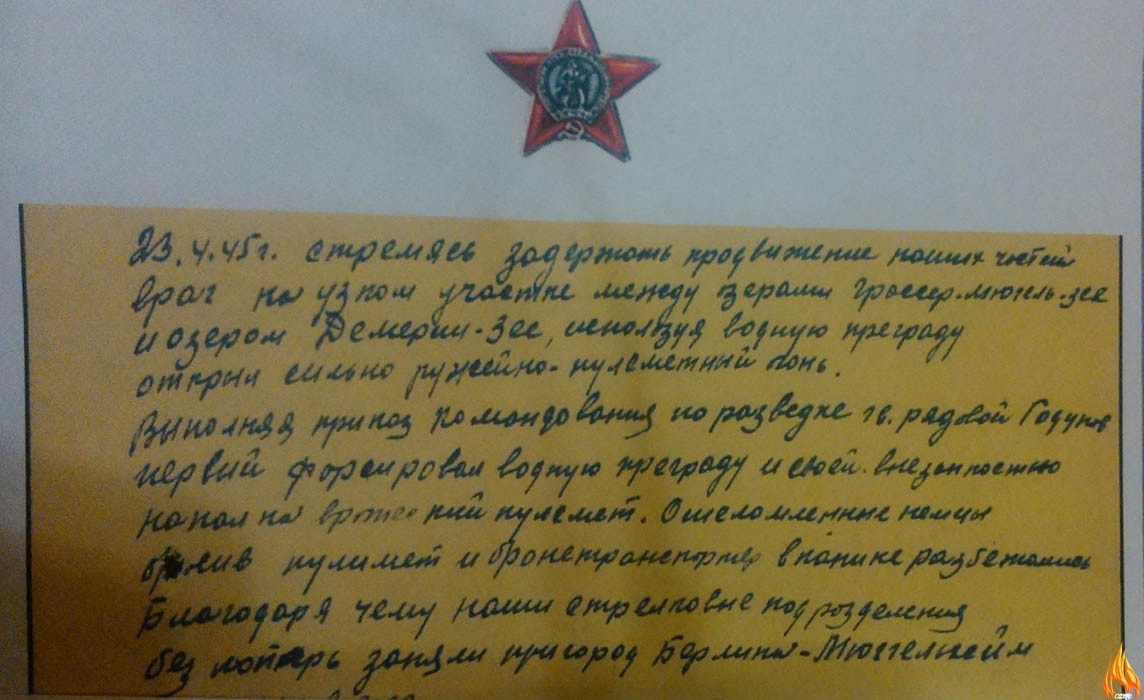 23.4.45г. стремясь задержать продвижение наших частей
враг на узком участке между зерами Гроссер-мюгель-зее
и озером Демерин-Зее, используя водную преграду
открыл сильно ружейно-пулеметный огонь.
Выполняя приказ командования по разведке гв. рядовой Годунов
первий форсировал водную преграду и своей внезапностью
напал на вражеский пулемет. Ошеломленные немцы
бросив пулимет и бронетранспортер в панике разбежались
Благодаря чему наши стрелковые подразделения
без потерь заняли пригород Берлина-Мюггельхейм